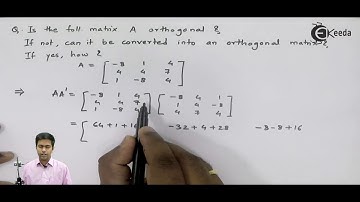 Ekeeda
Q. Is the foll matrix A orthogonal ?
If not, can it be converted into an orthogonal matrix ?
If yes, how ?
-8 1 4
A = 4 4 7
1 -8 4
-8 1 4 -8 4 1
⇒ AA' = 4 4 7 1 4 -8
1 -8 4 4 7 4
= [ 64 + 1 + 16 -32 + 4 + 28 -8 - 8 + 16